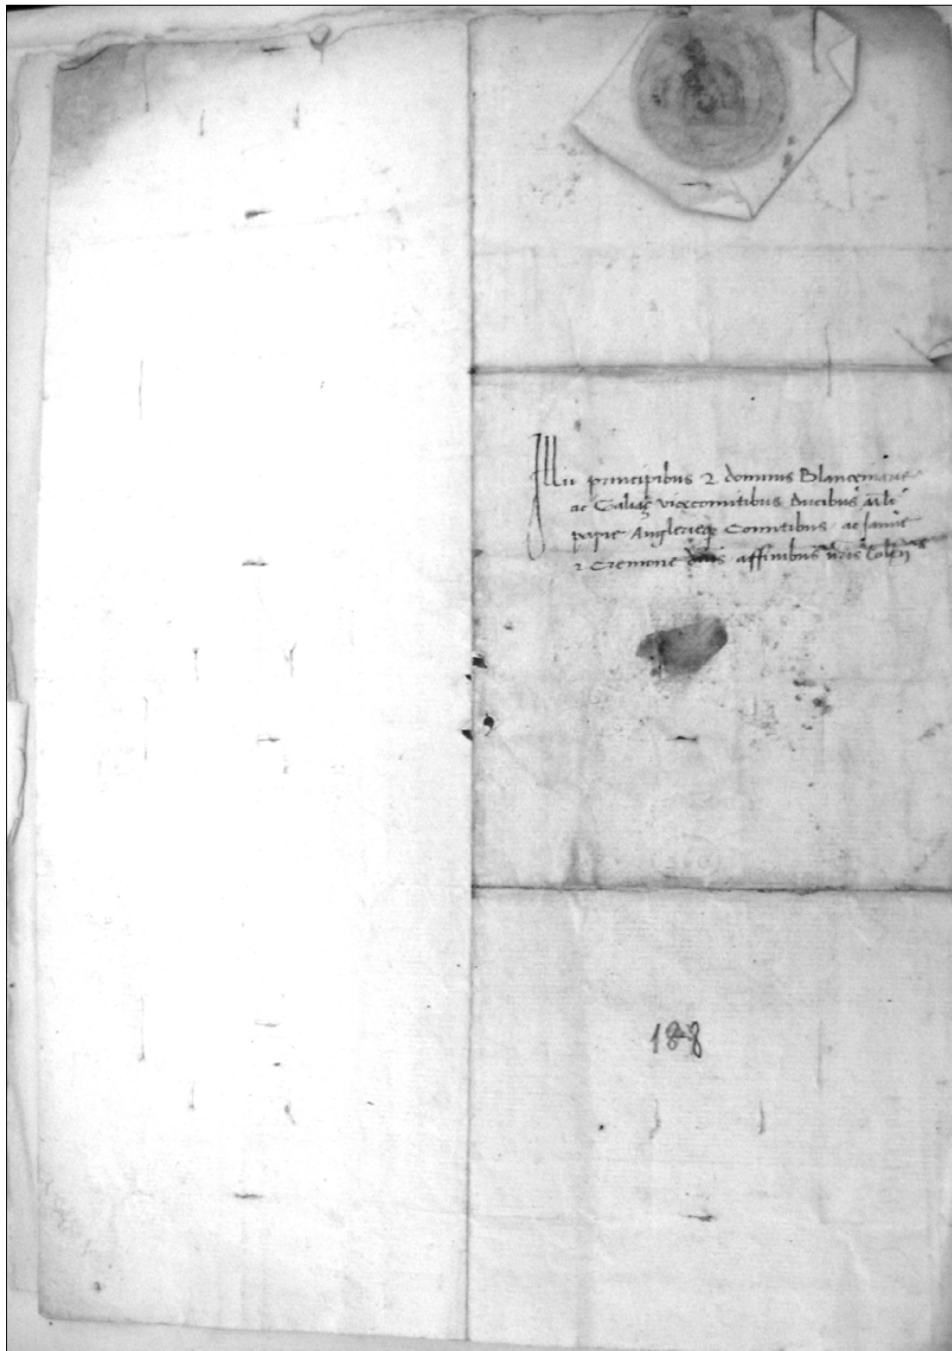 Illu principibus 2 dominis Blancemarie
ac Galiaz vicecomitibus Ducibus mli
papie Anglerieq Comitibus ac Janue
2 Cremone dnis affinibus nris Colen
188